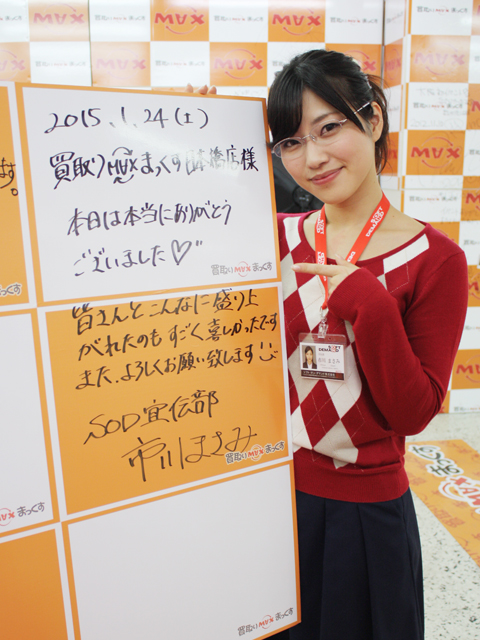 2015.1.24(土)
買取りMAXまっくす日本橋店様
本日は本当にありがとう
ございました♡"
買取りMAXまっくす
皆さんとこんなに盛り上
がれたのもすごく喜しかったです
また、よろしくお願い致します
SOD宣伝部
市川まさみ
買取りMAXまっくす
買取りMAXまっくす